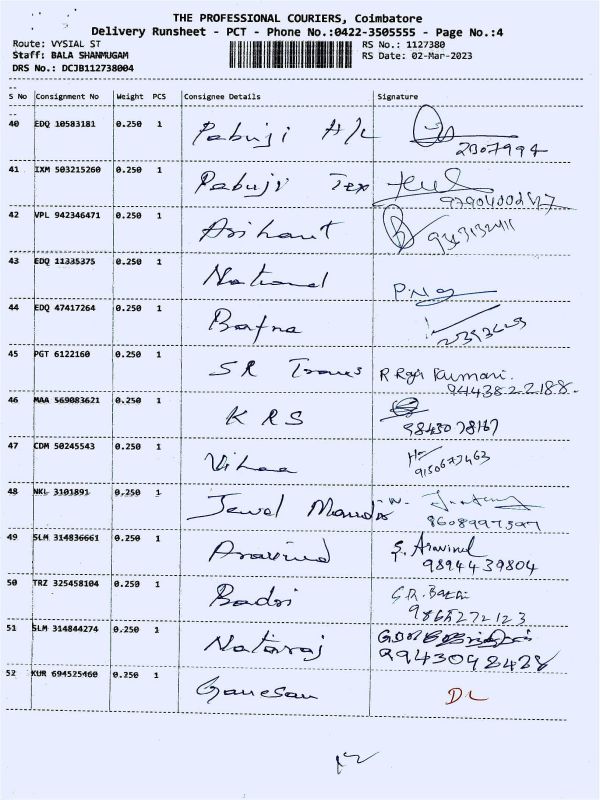 THE PROFESSIONAL COURIERS, Coimbatore
Delivery Runsheet - PCT - Phone No.:0422-3505555 - Page No.:4
Route: VYSIAL ST RS No.: 1127380
Staff: BALA SHANMUGAM RS Date: 02-Mar-2023
DRS No.: DCJB112738004
S No Consignment No Weight PCS Consignee Details Signature
40 EDQ 10583181 0.250 1 Pabuji A/C
2307994
41 IXM 503215260 0.250 1 Pabuji Tex
42 VPL 942346471 0.250 1 Arihant
43 EDQ 11335375 0.250 1 National
44 EDQ 47417264 0.250 1 Bafna
45 PGT 6122160 0.250 1 SR Traves R Raja Kumari.
9443822188.
46 MAA 569083621 0.250 1 KRS
9843078167
47 CDM 50245543 0.250 1
9150677463
48 NKL 3101891 0.250 1 Jewel
8608997597
49 SLM 314836661 0.250 1 Aravind S. Aravind
9894439804
50 TRZ 325458104 0.250 1 Badri
9865272123
51 SLM 314844274 0.250 1 Nataraj
9943098428
52 KUR 694525460 0.250 1 Ganesan DL